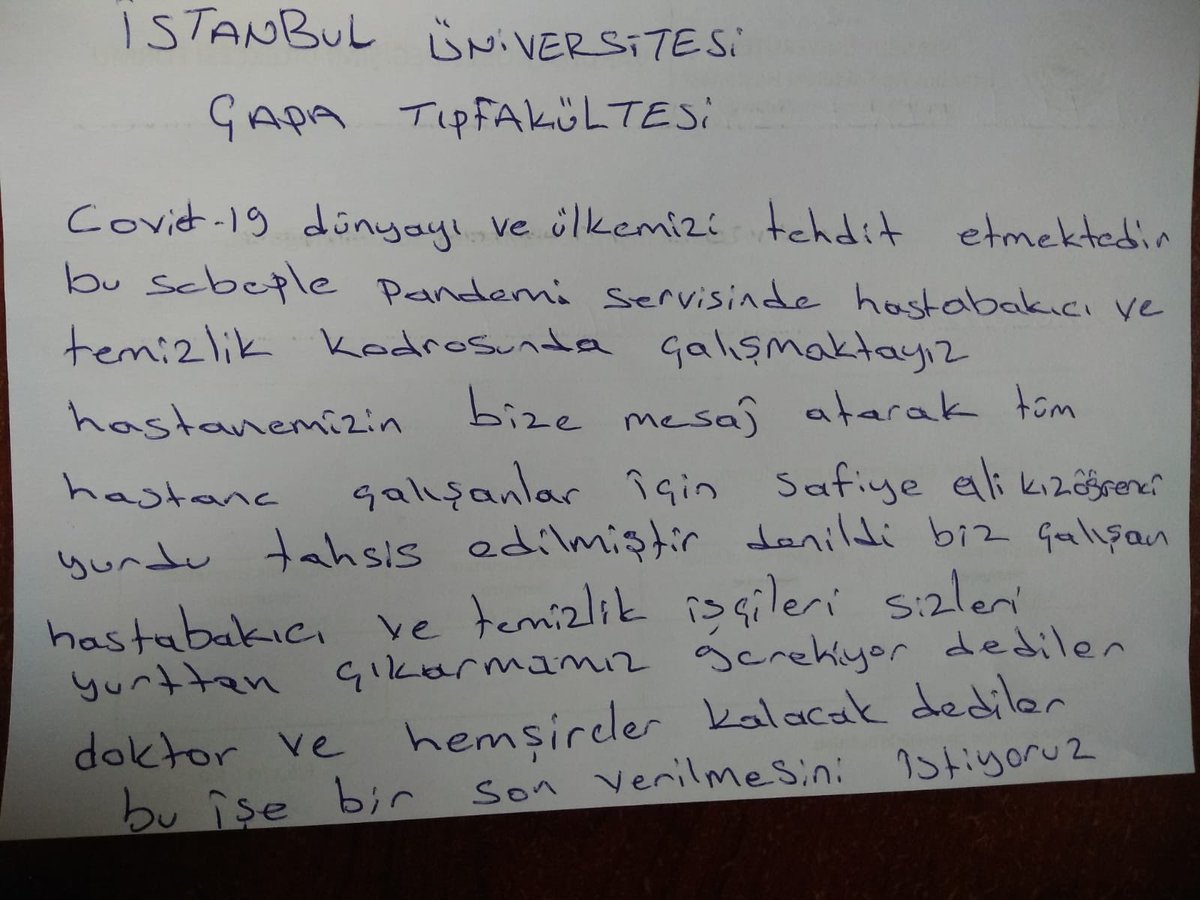 İSTANBUL ÜNİVERSİTESİ
ÇAPA TIPFAKÜLTESİ
Covid-19 dünyayı ve ülkemizi tehdit etmektedir
bu sebeple pandemi servisinde hastabakıcı ve
temizlik kadrosunda çalışmaktayız
hastanemizin bize mesaj atarak tüm
hastane çalışanlar için safiye ali kızöğrenci
yurdu tahsis edilmiştir denildi biz çalışan
hastabakıcı ve temizlik işçileri sizleri
yurttan çıkarmamız gerekiyor dediler
doktor ve hemşireler kalacak dediler
bu işe bir son verilmesini istiyoruz